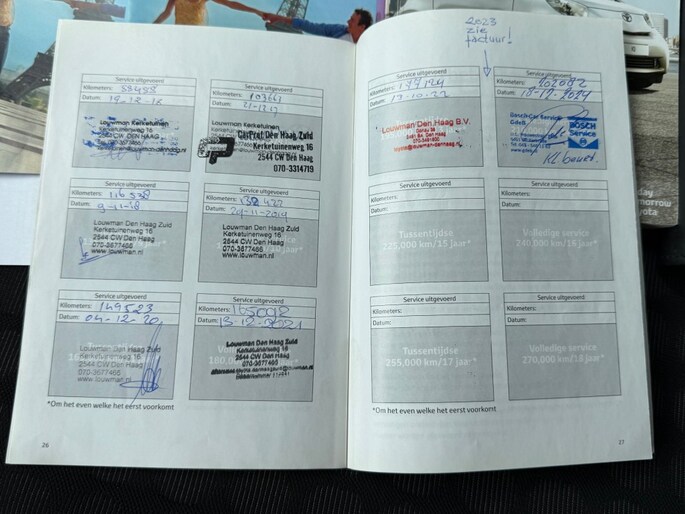 Service uitgevoerd
Kilometers: 88458
Datum:
Louwman Kerketuinen
Kerketuinenweg 16
CW DEN HAAG
Service uitgevoerd
Kilometers: 103661
Datum: 21-12-17
CarProf Den Haag Zuid
Kerketuinenweg 16
2544 CW Den Haag
070-3314719
Service uitgevoerd
Kilometers: 116 538
Datum: 9-11-18
Louwman Den Haag Zuid
Kerketuinenweg 16
2544 CW Den Haag
070-3677466
www.louwman.nl
Service uitgevoerd
Kilometers: 132 427
Datum: 29-11-2019
Louwman Den Haag Zuid
Kerketuinenweg 16
2544 CW Den Haag
070-3677466
www.louwman.nl
Service uitgevoerd
Kilometers: 149523
Datum: 04-12-20
Louwman Den Haag Zuid
Kerketuinenweg 16
2544 CW Den Haag
070-3677466
www.louwman.nl
Service uitgevoerd
Kilometers: 165092
Datum: 13-12-2021
Louwman Den Haag Zuid
Kerketuinenweg 16
2544 CW Den Haag
070-3677466
*Om het even welke het eerst voorkomt
26
2023
zie
factuur!
Service uitgevoerd
Kilometers: 177124
Datum: 17-10-22
Louwman Den Haag B.V.
Service uitgevoerd
Kilometers:
Datum: 18-12-2024
Bosch Car Service
BOSCH
Service
Service uitgevoerd
Kilometers:
Datum:
Tussentijdse
225,000 km/15 jaar*
Service uitgevoerd
Kilometers:
Datum:
Volledige service
240,000 km/16 jaar*
Service uitgevoerd
Kilometers:
Datum:
Tussentijdse
255,000 km/17 jaar*
Service uitgevoerd
Kilometers:
Datum:
Volledige service
270,000 km/18 jaar*
*Om het even welke het eerst voorkomt
27